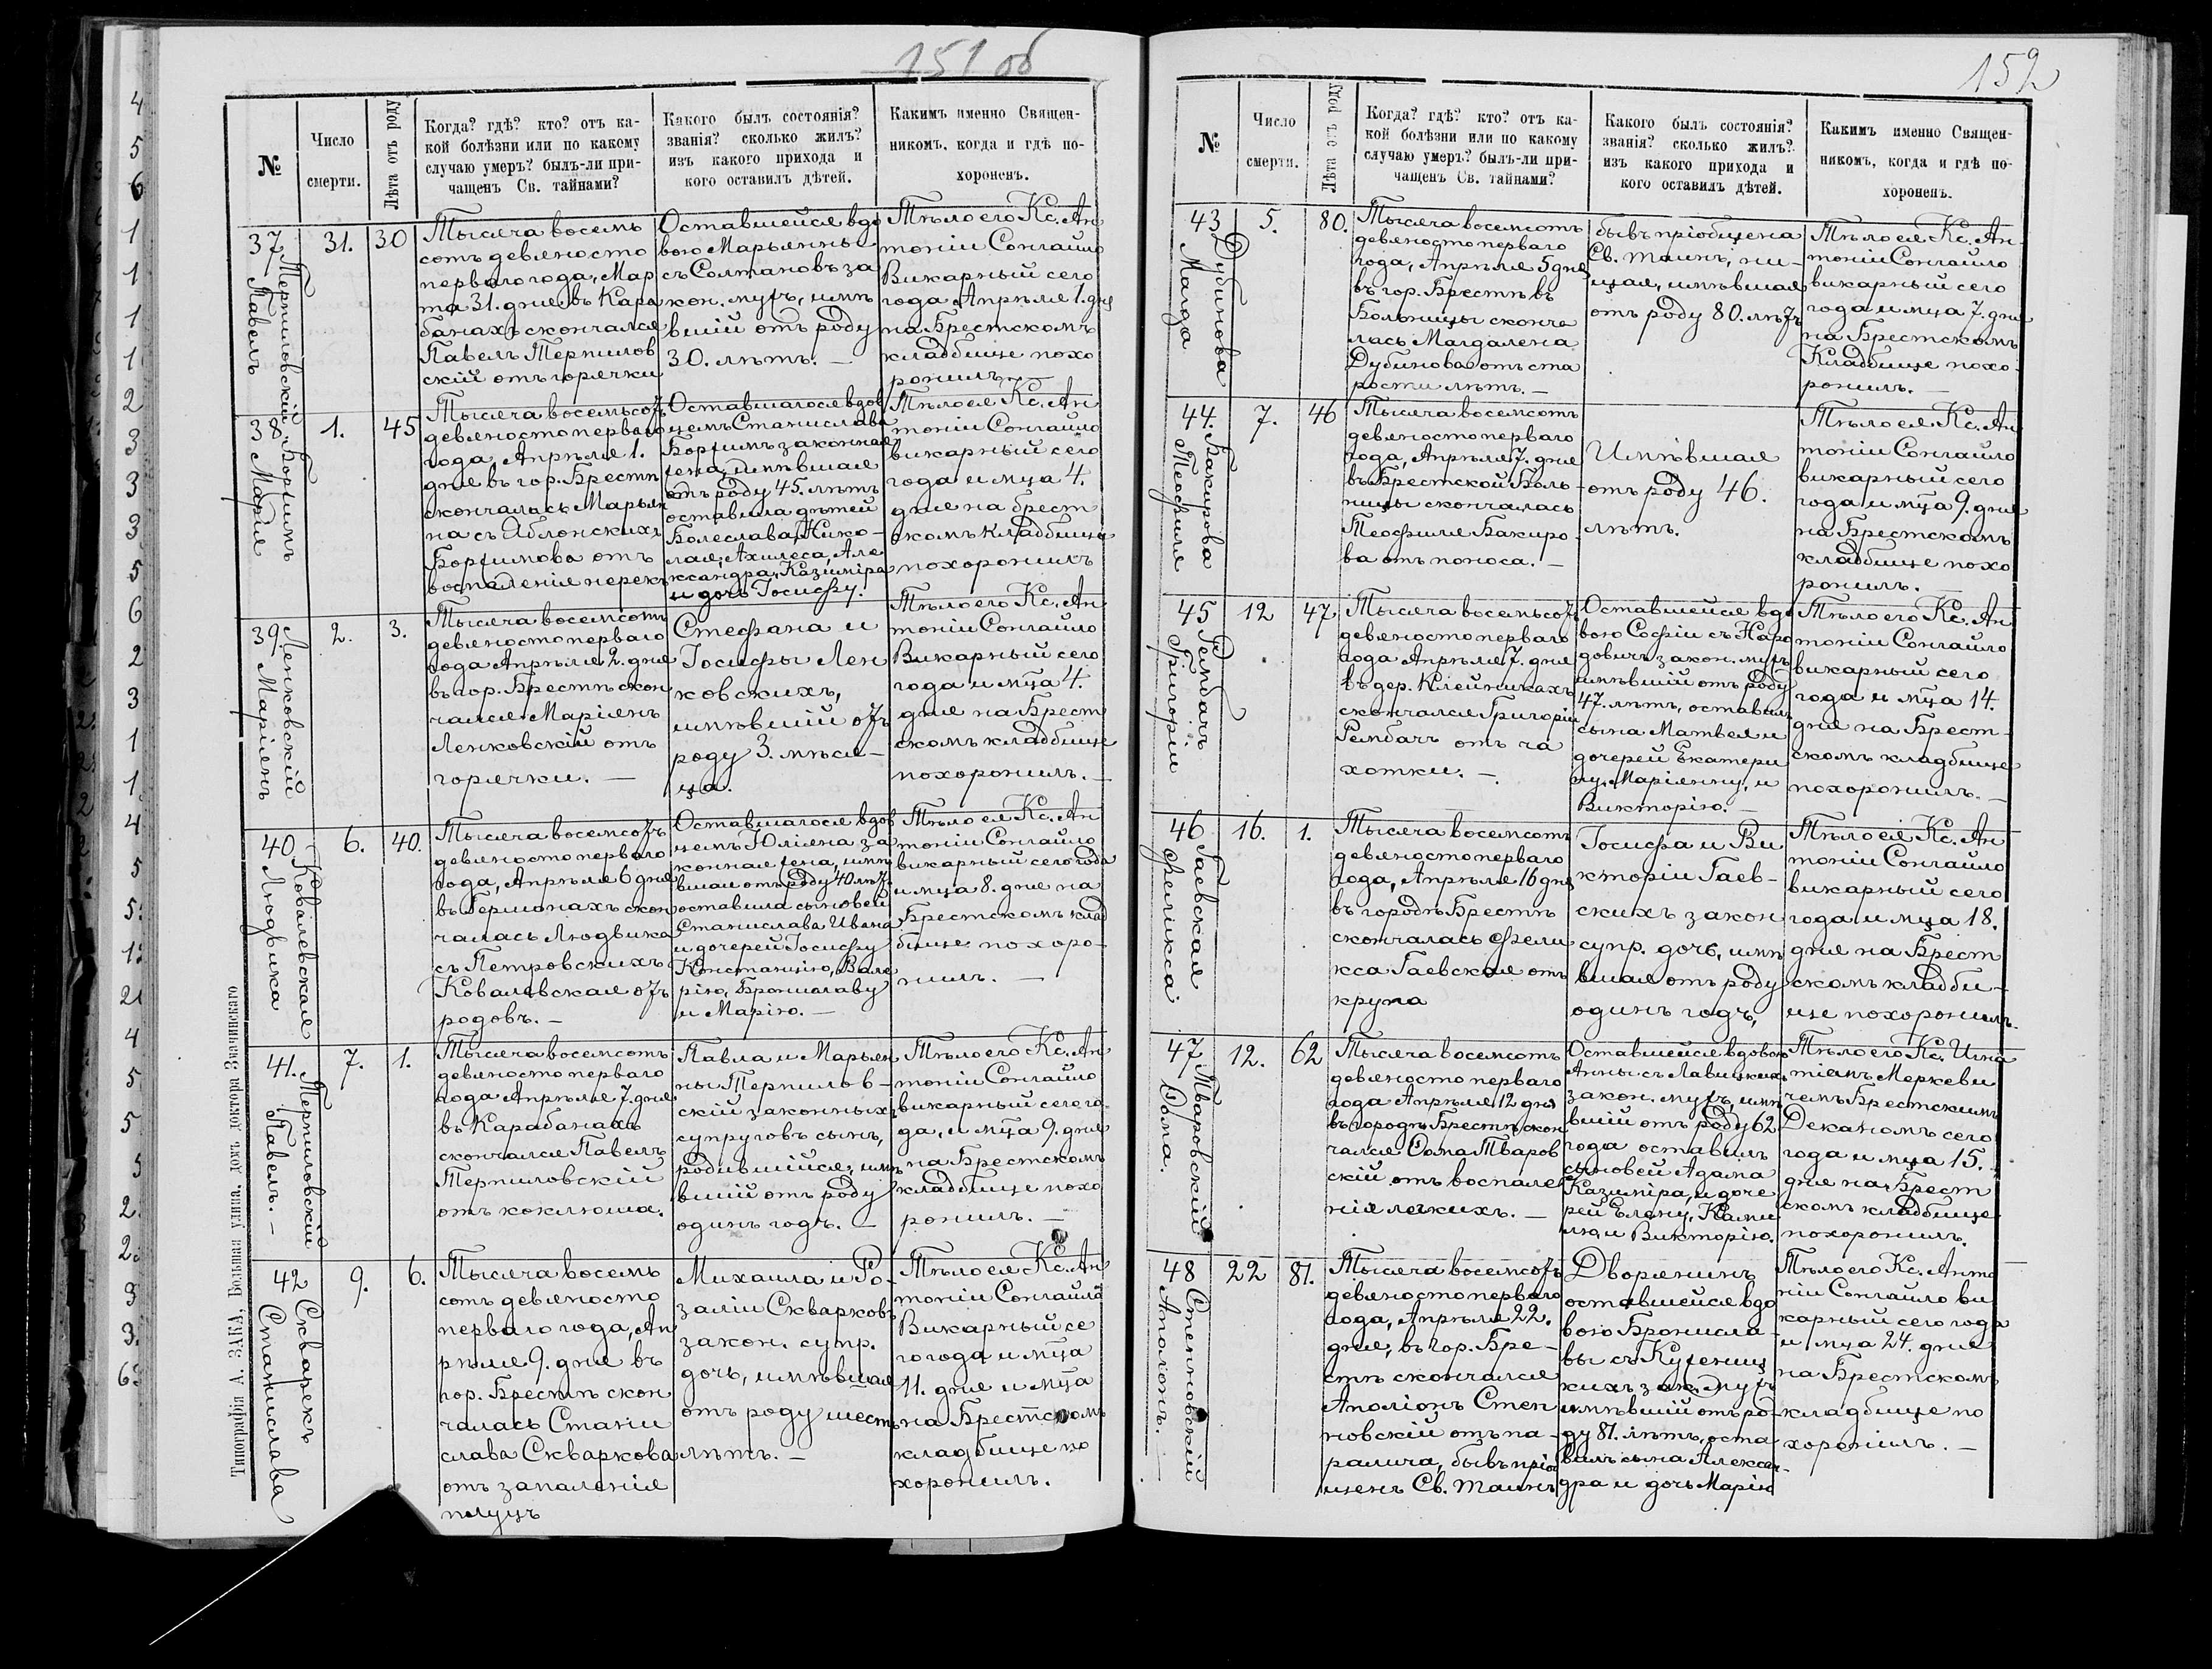 151 об
№
Число
смерти.
Лѣта отъ роду
Когда? гдѣ? кто? отъ ка-
кой болѣзни или по какому
случаю умеръ? былъ-ли при-
чащенъ Св. тайнами?
Какого былъ состоянія?
званія? сколько жилъ?
изъ какого прихода и
кого оставилъ дѣтей.
Какимъ именно Священ-
никомъ, когда и гдѣ по-
хороненъ.
37
Терпиловскій
Павелъ
31.
30
Тысяча восемь
сотъ девяносто
перваго года, Мар
та 31. дня въ Кара
банахъ скончался
Павелъ Терпилов
скій отъ горячки
Оставшейся вдо
вою Марьянны
съ Солтановъ за
кон. мужъ, имѣ
вшій отъ роду
30. лѣтъ. —
Тѣло его Кс. Ан
тоній Сонгайло
Викарный сего
года Апрѣля 1. дня
на Брестскомъ
кладбище похо
ронилъ. —
38
Боржимъ
Марія
1.
45
Тысяча восемьсотъ
девяносто перваго
года Апрѣля 1.
дня въ гор. Брестѣ
скончалась Марьян
на съ Яблонскихъ
Боржимова отъ
воспаленія
Оставшагося вдов
цемъ Станислава
Боржимъ законная
жена, имѣвшая
отъ роду 45. лѣтъ
оставила дѣтей
Болеслава, Нико-
лая, Ахилеса, Але
ксандра, Казиміра
и дочь Іосифу.
Тѣло ея Кс. Ан
тоній Сонгайло
викарный сего
года и мца 4.
дня на брест
скомъ кладбище
похоронилъ
39
Ленковскій
Маріянъ
2.
3.
Тысяча восемсотъ
девяносто перваго
года Апрѣля 2. дня
въ гор. Брестѣ скон
чался Маріянъ
Ленковскій отъ
горячки. —
Стефана и
Іосифы Лен
ковскихъ,
имѣвшій отъ
роду 3. мѣся-
ца.
Тѣло его Кс. Ан
тоній Сонгайло
Викарный сего
года и мца 4.
дня на Брест
скомъ кладбище
похоронилъ. —
40
Ковалевская
Людвика
6.
40.
Тысяча восемсотъ
девяносто перваго
года, Апрѣля 6 дня
въ Германахъ скон
чалась Людвика
съ Петровскихъ
Ковалевская отъ
родовъ. —
Оставшагося вдов
цемъ Юліяна за
конная жена, имѣ
вшая отъ роду 40 лѣтъ
оставила сыновей
Станислава Ивана
и дочерей Іосифу
Констанцію, Вале
рію, Брониславу
и Марію. —
Тѣло ея Кс. Ан
тоній Сонгайло
викарный сего года
и мца 8. дня на
Брестскомъ клад
бище похоро-
нилъ. —
41.
Терпиловскій
Павелъ. —
7.
1.
Тысяча восемсотъ
девяносто перваго
года Апрѣля 7. дня
въ Карабанахъ
скончался Павелъ
Терпиловскій
отъ коклюша.
Павла и Марьян
ны Терпилов-
скій законныхъ
супруговъ сынъ,
родившійся, имѣ
вшій отъ роду
одинъ годъ. —
Тѣло его Кс. Ан
тоній Сонгайло
викарный сего го
да, и мца 9. дня
на Брестскомъ
кладбище похо
ронилъ. —
42
Скварекъ
Станислава
9.
6.
Тысяча восемь
сотъ девяносто
перваго года, Ап
рѣля 9. дня въ
гор. Брестѣ скон
чалась Стани
слава Скваркова
отъ запаленія
Михаила и Ро-
заліи Скварковъ
закон. супр.
дочь, имѣвшая
отъ роду шесть
лѣтъ. —
Тѣло ея Кс. Ан
тоній Сонгайло
Викарный се
го года и мца
11. дня и мца
на Брестскомъ
кладбище по
хоронилъ.
Типографія А. ЗАКА, Большая улица, домъ доктора Значинскаго
152
№
Число
смерти.
Лѣта съ роду
Когда? гдѣ? кто? отъ ка-
кой болѣзни или по какому
случаю умеръ? былъ-ли при-
чащенъ Св. тайнами?
Какого былъ состоянія?
званія? сколько жилъ?
изъ какого прихода и
кого оставилъ дѣтей.
Какимъ именно Священ-
никомъ, когда и гдѣ по-
хороненъ.
43
Дубинова
Магда
5.
80.
Тысяча восемсотъ
девяносто перваго
года, Апрѣля 5 дня
въ гор. Брестѣ въ
Больницы сконча
лась Магдалена
Дубинова отъ ста
рости лѣтъ. —
бывъ пріобщена
Св. таинъ, ни-
щая, имѣвшая
отъ роду 80. лѣтъ
Тѣло ея Кс. Ан-
тоній Сонгайло
викарный сего
года и мца 7. дня
на Брестскомъ
Кладбище похо
ронилъ. —
44.
Бакирова
Теофиля
7.
46
Тысяча восемсотъ
девяносто перваго
года, Апрѣля 7. дня
въ Брестской Боль
ницы скончалась
Теофиля Бакиро
ва отъ поноса. —
Имѣвшая
отъ роду 46.
лѣтъ.
Тѣло ея Кс. Ан
тоній Сонгайло
викарный сего
года и мца 9. дня
на Брестскомъ
кладбище похо
ронилъ. —
45
Рембачъ
Григорій
12
47
Тысяча восемьсотъ
девяносто перваго
года Апрѣля 7. дня
въ дер. Клейникахъ
скончался Григорій
Рембачъ отъ ча
хотки. —
Оставшейся вдо
вою Софіи съ Наро
довичъ закон. мужъ
имѣвшій отъ роду
47. лѣтъ, оставилъ
сына Матвея и
дочерей Екатери
ну, Маріянну, и
Викторію. —
Тѣло его Кс. Ан
тоній Сонгайло
викарный сего
года и мца 14.
дня на Брест-
скомъ кладбище
похоронилъ. —
46
Гаевская
Феликса
16.
1.
Тысяча восемсотъ
девяносто перваго
года, Апрѣля 16 дня
въ городѣ Брестѣ
скончалась Фели
кса Гаевская отъ
крупа
Іосифа и Ви
кторіи Гаев-
скихъ закон
супр. дочь, имѣ
вшая отъ роду
одинъ годъ,
Тѣло ея Кс. Ан
тоній Сонгайло
викарный сего
года и мца 18.
дня на Брест
скомъ кладби-
ще похоронилъ.
47
Тваровскій
Ѳома.
12.
62
Тысяча восемсотъ
девяносто перваго
года Апрѣля 12 дня
въ городѣ Брестѣ скон
чался Ѳома Тваров
скій отъ воспале
нія легкихъ. —
Оставшейся вдовою
Анны съ Лавицкихъ
закон. мужъ, имѣ
вшій отъ роду 62
года оставилъ
сыновей Адама
Казиміра, и доче
рей Елену, Ками
лю и Викторію.
Тѣло его Кс. Игна
тіемъ Меркеви
чемъ Брестскимъ
Деканомъ сего
года и мца 15.
дня на Брест
скомъ кладбище
похоронилъ.
48
Стенновскій
Аполонъ. —
22
81.
Тысяча восемсотъ
девяносто перваго
года, Апрѣля 22.
дня, въ гор. Бре-
стѣ скончался
Аполіонъ Стен
новскій отъ па-
ралича, бывъ пріоб
щенъ Св. Таинъ
Дворянинъ
оставшейся вдо
вою Бронисла-
вы съ Куженец
кихъ зак. мужъ
имѣвшій отъ ро-
ду 81. лѣтъ, оста
вилъ сына Алексан-
дра и дочь Марію
Тѣло его Кс. Анто
ній Сонгайло ви
карный сего года
и мца 24. дня
на Брестскомъ
кладбище по
хоронилъ. —